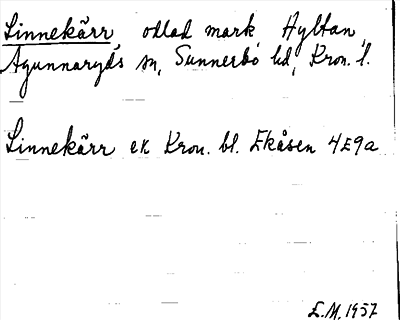 Linnekärr odlad mark, Hyltan,
Agunnaryds sn, Sunnerbo hd, Kron. l.
Linnekärr ek Kron. bl. Ekåsen 4E9a
E.M. 1957